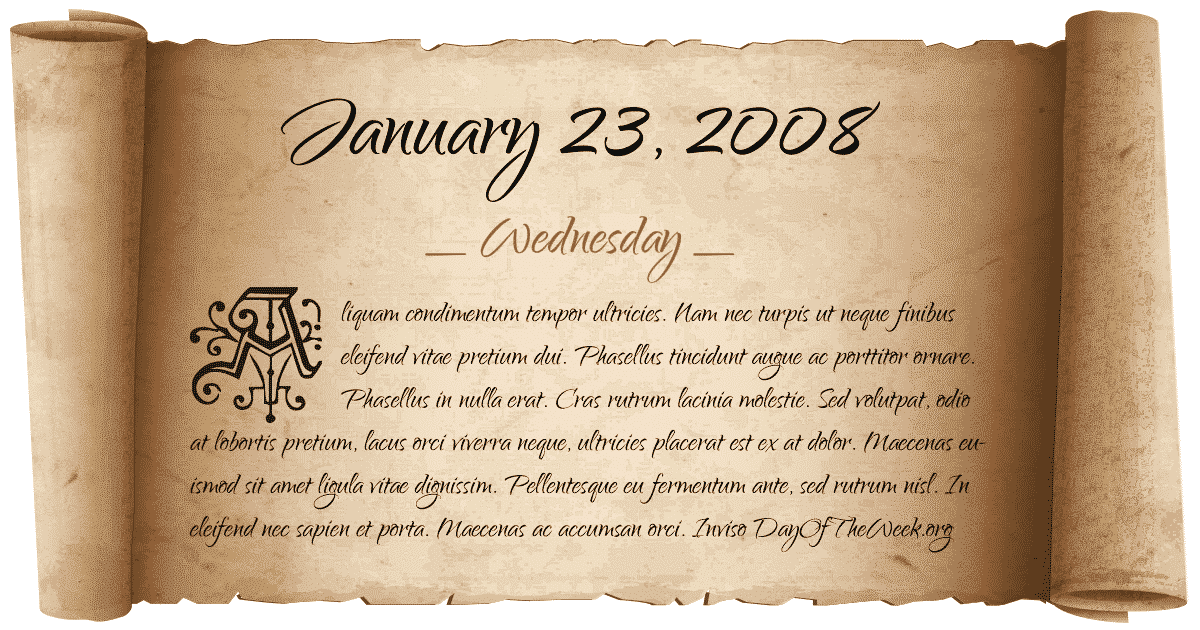 January 23, 2008
Wednesday
Aliquam condimentum tempor ultricies. Nam nec turpis ut neque finibus
eleifend vitae pretium dui. Phasellus tincidunt augue ac porttitor ornare.
Phasellus in nulla erat. Cras rutrum lacinia molestie. Sed volutpat, odio
at lobortis pretium, lacus orci viverra neque, ultricies placerat est ex at dolor. Maecenas eu-
ismod sit amet ligula vitae dignissim. Pellentesque eu fermentum ante, sed rutrum nisl. In
eleifend nec sapien et porta. Maecenas ac accumsan orci. Inviso DayOfTheWeek.org